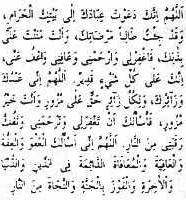 اللَّهُمَّ إِنَّكَ دَعَوْتَ عِبَادَكَ إِلَى بَيْتِكَ الْحَرَامِ،
وَقَدْ جِئْتُ طَالِباً مَرْضَاتِكَ، وَأَنْتَ مَنَنْتَ عَلَيَّ
بِذَلِكَ، فَاغْفِرْلِي وَارْحَمْنِي وَعَافِنِي وَاعْفُ عَنِّي،
إِنَّكَ عَلَى كُلِّ شَيْءٍ قَدِيرٌ. اللَّهُمَّ إِنِّي عَبْدُكَ
وَزَائِرُكَ، وَلِكُلِّ زَائِرٍ حَقٌّ عَلَى مَزُورٍ وَأَنْتَ خَيْرُ
مَزُورٍ، فَأَسْأَلُكَ أَنْ تَغْفِرَلِي وَتَرْحَمَنِي وَتَفُكَّ
رَقَبَتِي مِنَ النَّارِ. اللَّهُمَّ إِنِّي أَسْأَلُكَ الْعَفْوَ وَالْعِفَّةَ
وَالْعَافِيَةَ وَالْمُعَافَاةَ الدَّائِمَةَ فِي الدِّينِ وَالدُّنْيَا
وَالْآخِرَةِ وَالْفَوْزَ بِالْجَنَّةِ وَالنَّجَاةَ مِنَ النَّارِ